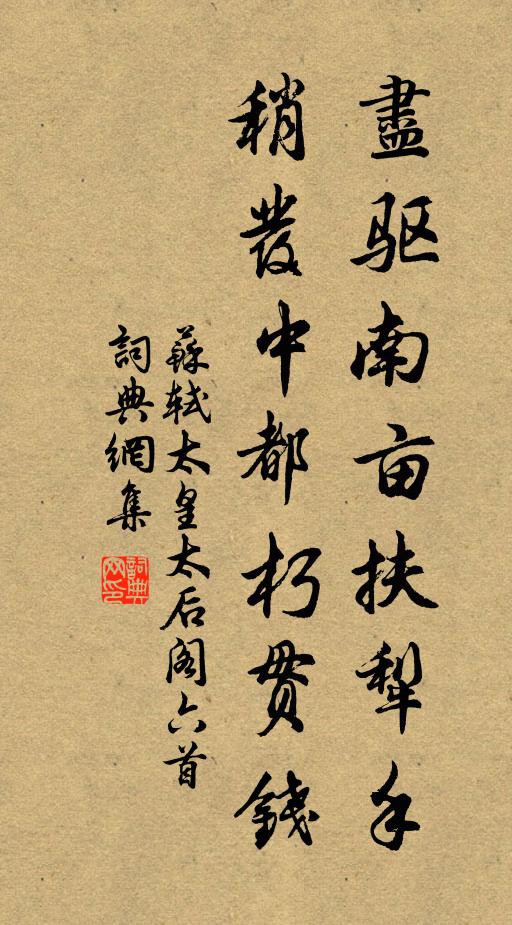 盡驱南亩扶犁手
稍發中都朽贯錢
蘇軾太皇太后阁六首
詞典網集
詞典网印